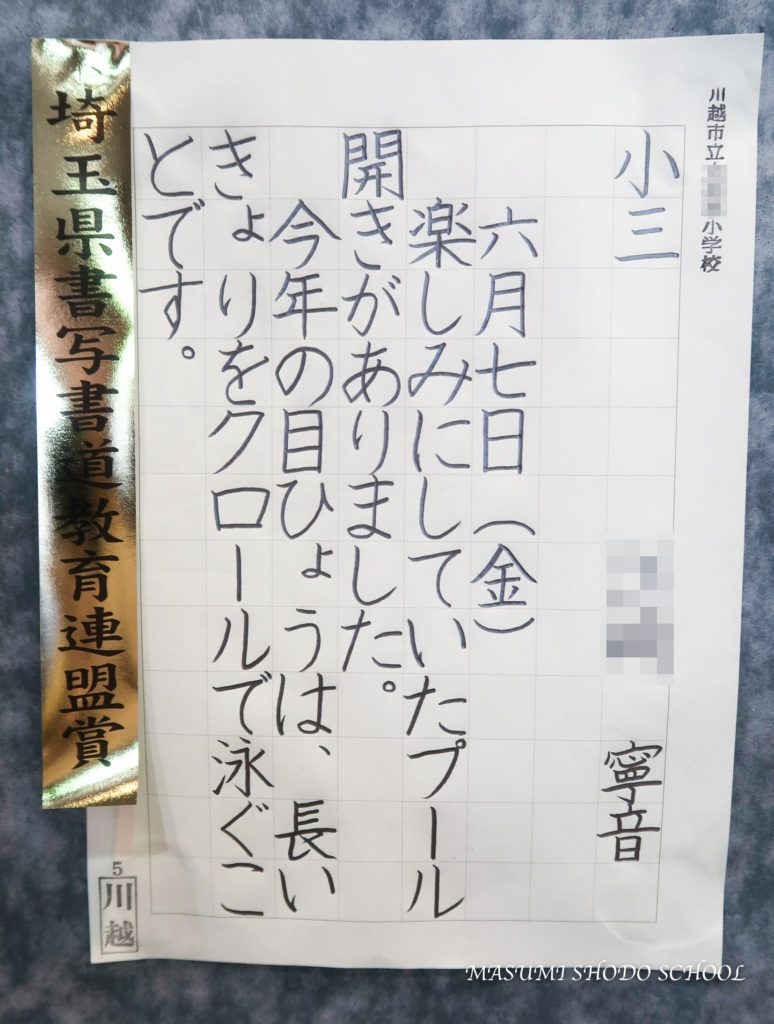 川越市立
小学校
小三
寧音
六月七日（金）
楽しみにしていたプール
開きがありました。
今年の目ひょうは、長い
きょりをクロールで泳ぐこ
とです。
埼玉県書写書道教育連盟賞
5
川越
MASUMI SHODO SCHOOL